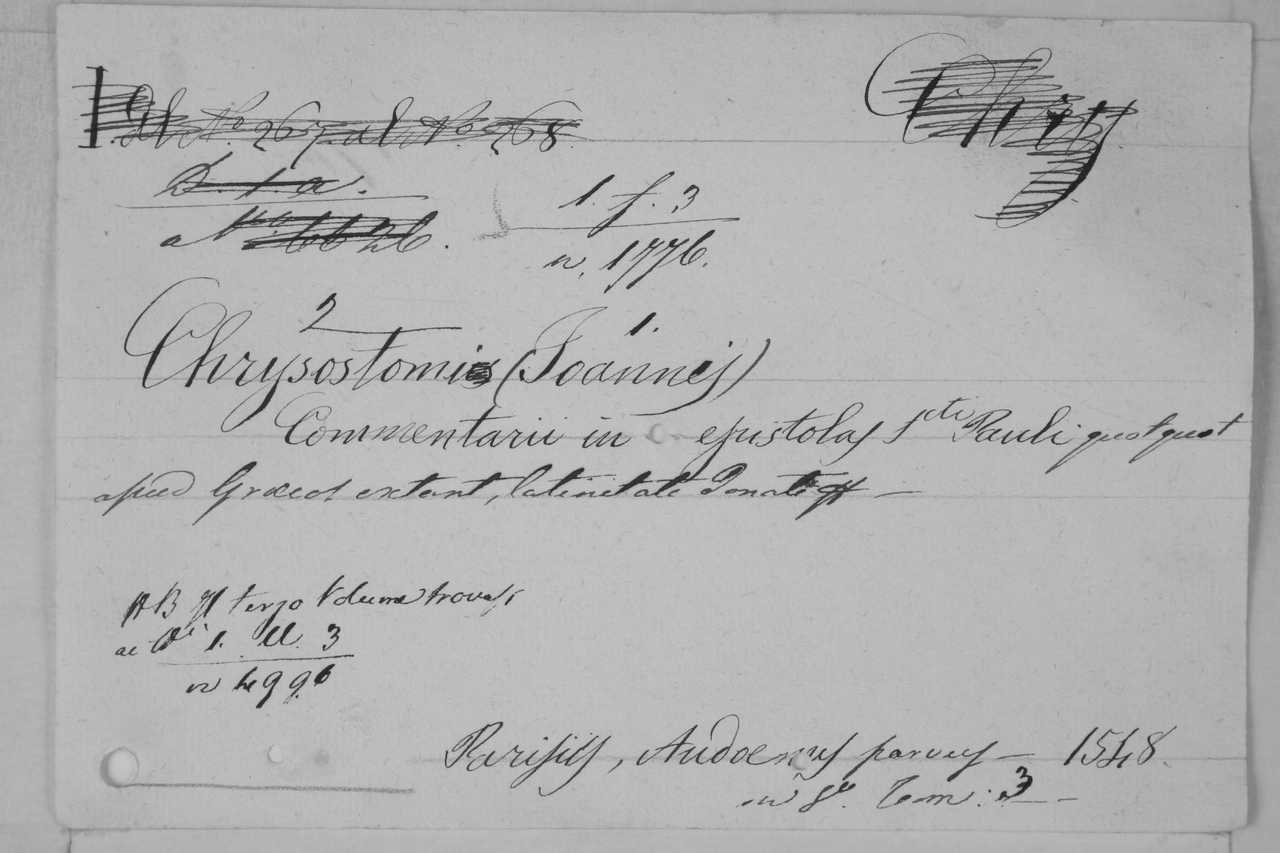 Dl. No. 267 al No. 268
D. 1. a.
1. f. 3
a No. 6626.
n. 1776.
2 1.
Chrysostomi (Joannis)
Commentarii in epistolas Scti Pauli quotquot
apud Græcos extant, latinitate Donati —
NB Il terzo Volume trovasi
1. ll. 3
n 4996
Parisiis, Audoenus parvus — 1548.
in 8o. Tom: 3 —